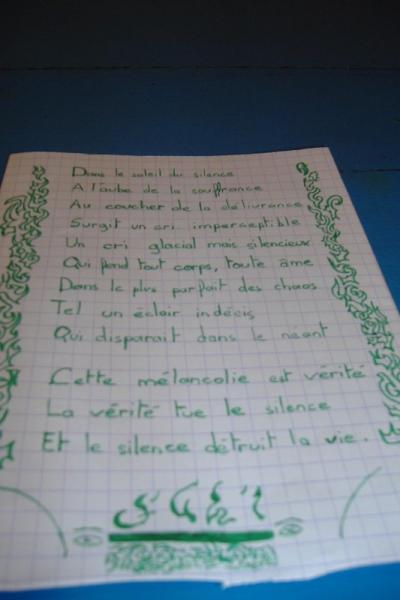 Dans le soleil du silence
A l'aube de la souffrance
Au coucher de la délivrance
Surgit un cri imperceptible
Un cri glacial mais silencieux
Qui fend tout corps, toute âme
Dans le plus parfait des chaos
Tel un éclair indécis
Qui disparait dans le neant
Cette mélancolie est vérité
La vérité tue le silence
Et le silence détruit la vie.